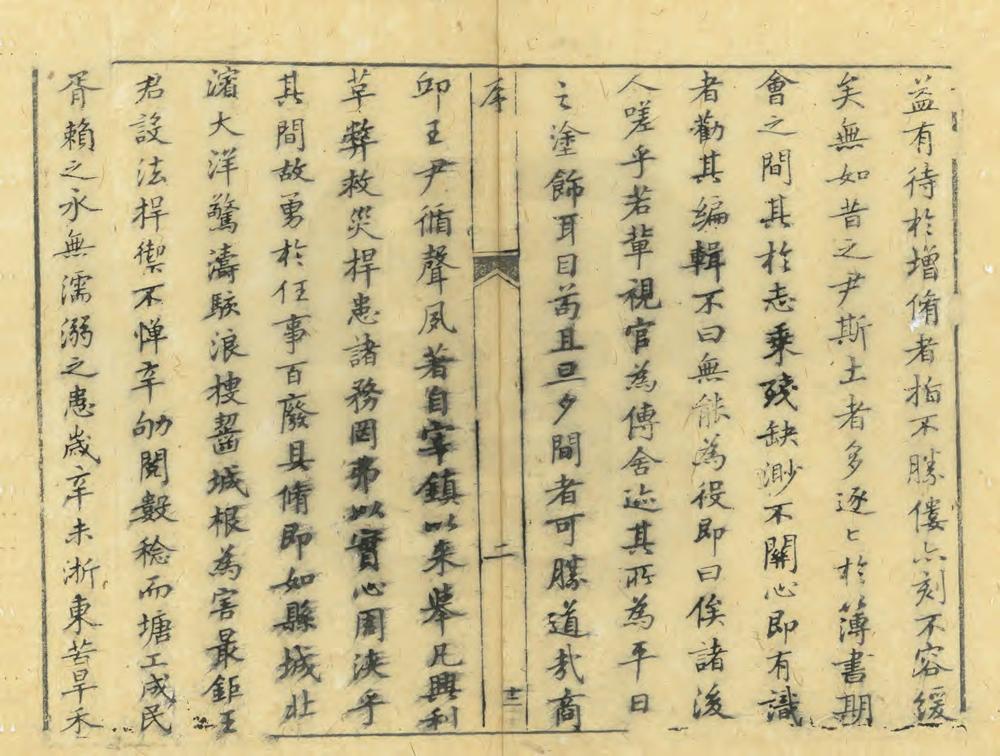 益有待於增脩者指不勝僂亦刻不容緩
矣無如昔之尹斯土者多逐〻於簿書期
會之間其於志乗殘缺渺不關心即有識
者勸其編輯不曰無能為役即曰俟諸後
人嗟乎若輩視官為傳舍迹其所為平日
之塗飾耳目苟且旦夕間者可勝道㢤商
序
二
卭王尹循聲夙著自宰鎮以来舉凡興利
革弊救災捍患諸務罔弗以實心周浹乎
其間故勇於任事百廢具脩即如縣城北
濱大洋驚濤駭浪搜齧城根為害最鉅王
君設法捍禦不憚辛劬閱數稔而塘工成民
胥賴之永無濡溺之患歲辛未浙東苦旱禾